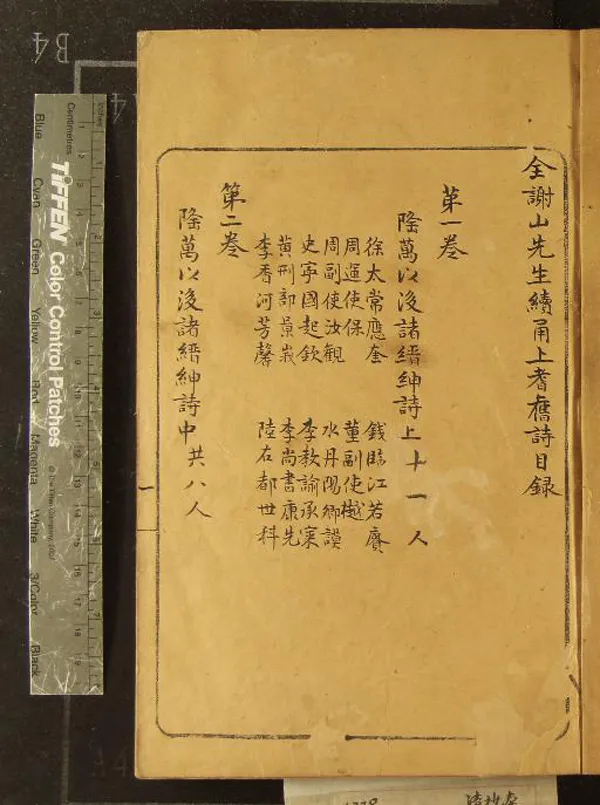 全謝山先生續甬上耆舊詩目録
第一卷
隆萬以後諸縉紳詩上十一人
徐太常應奎 錢臨江若賡
周運使保 董副使樾
周副使汝觀 水丹陽卿謨
史寧國起欽 李教諭承寀
黃刑部景峩 李尚書康先
李香河芳馨 陸右都世科
第二卷
隆萬以後諸縉紳詩中共八人
一
B4
A4
TIFFEN Color Control Patches
© The Tiffen Company, 2007
Centimetres
Inches
Blue
Cyan
Green
Yellow
Red
Magenta
White
3/Color
Black